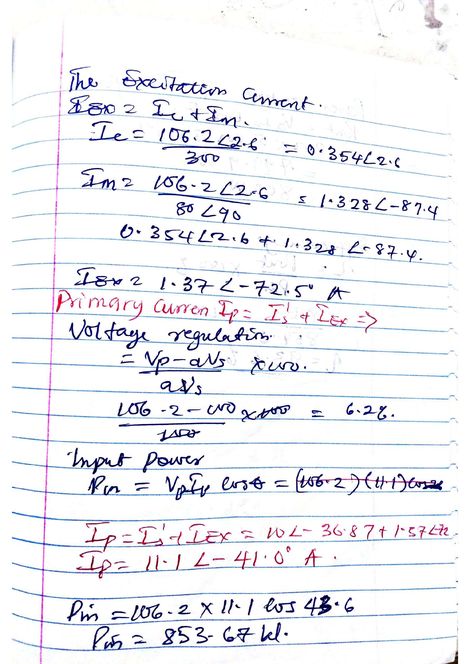 The Excitation Current.
IEX = Ic + Im.
Ic = 106.2∠2.6 = 0.354∠2.6
300
Im = 106.2∠2.6 = 1.328∠-87.4
80∠90
0.354∠2.6 + 1.328∠-87.4.
IEX = 1.37∠-72.5° A
Primary Curren Ip = Is' + IEx =>
Voltage regulation
= Vp - aVs x 100.
aVs
106.2 - 100 x 100 = 6.2%.
100
Input power
Pin = VpIp cosθ = (106.2)(11.1)cos
Ip = Is' + IEX = 10∠-36.87 + 1.37∠72
Ip = 11.1∠-41.0° A.
Pin = 106.2 x 11.1 cos 43.6
Pin = 853.67